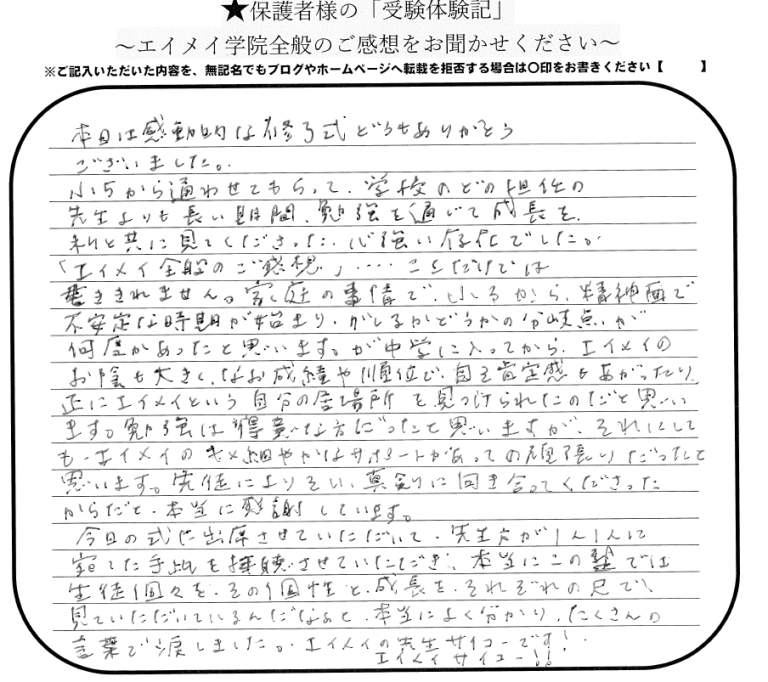 ★保護者様の「受験体験記」
～エイメイ学院全般のご感想をお聞かせください～
※ご記入いただいた内容を、無記名でもブログやホームページへ転載を拒否する場合は〇印をお書きください【　　　】
本日は感動的な修了式どうもありがとう
ございました。
小5から通わせてもらって、学校のどの担任の
先生よりも長い期間、勉強を通じて成長を、
私と共に見てくださった、心強い存在でしたが
「エイメイ全般のご感想」‥‥ことだけでは
書ききれません。家庭の事情で、小5から、精神面で
不安定な時期が始まり、がんるかどうかの分岐点が
何度かあったと思います。が中学に入ってから、エイメイの
お陰も大きく、なお成績や順位で、自己肯定感もあがったり、
正にエイメイという自分の居場所を見つけられたのだと思い
ます。勉強は得意な方だったと思いますが、それにして
も、エイメイのきめ細やかなサポートがあっての頑張りだったと
思います。生徒によりそい、真剣に向き合ってくださった
からだと、本当に感謝しています。
今日の式に出席させていただいて、先生方が1人1人に
宛てた手紙を拝聴させていただき、本当にこの塾では
生徒個々を、その個性と、成長を、それぞれの尺で、
見ていただいているんだなぁと、本当によく分かり、たくさんの
言葉で涙しましたが、エイメイの先生サイコーです！
エイメイサイコー!!